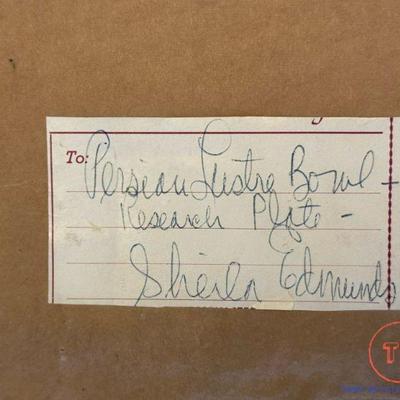 To: Persian Lustre Bowl -
Research Plate -
Sheila Edmunds
T